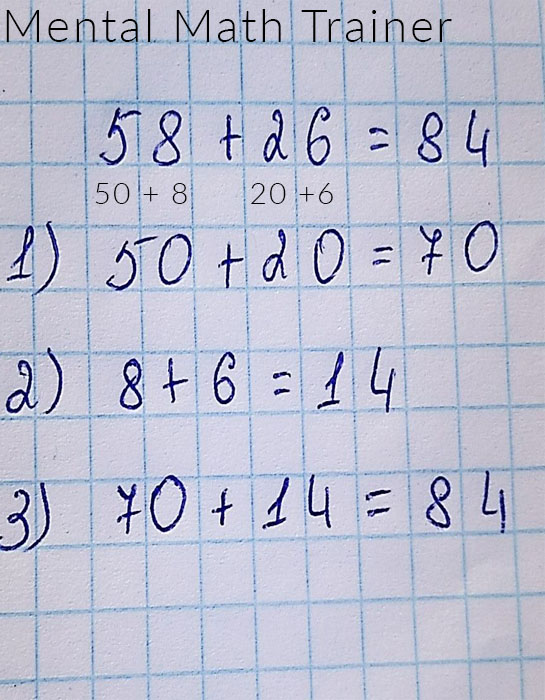 Mental Math Trainer
58 + 26 = 84
50 + 8 20 +6
1) 50 + 20 = 70
2) 8 + 6 = 14
3) 70 + 14 = 84